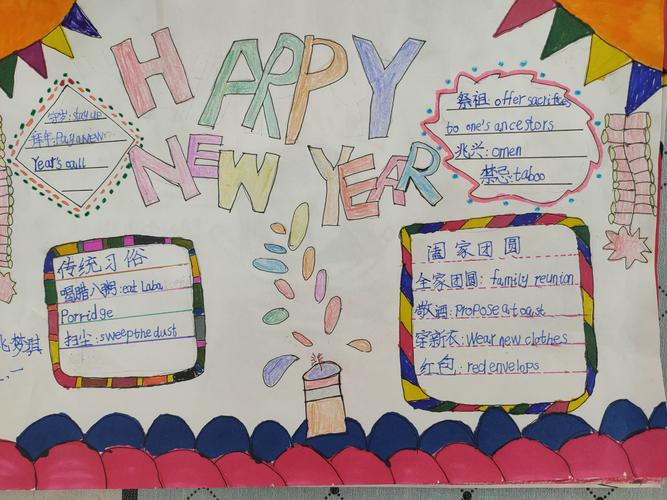 HAPPY
NEW YEAR
守岁: stay up
拜年: Pay a NEW
Year's call
祭祖 offer sacrifices
to one's ancestors
兆兴: omen
禁忌: taboo
传统习俗
喝腊八粥: eat Laba
Porridge
扫尘: sweep the dust
阖家团圆
全家团圆: family reunion
敬酒: Propose a toast
穿新衣: Wear new clothes
红包: red envelops
梦琪